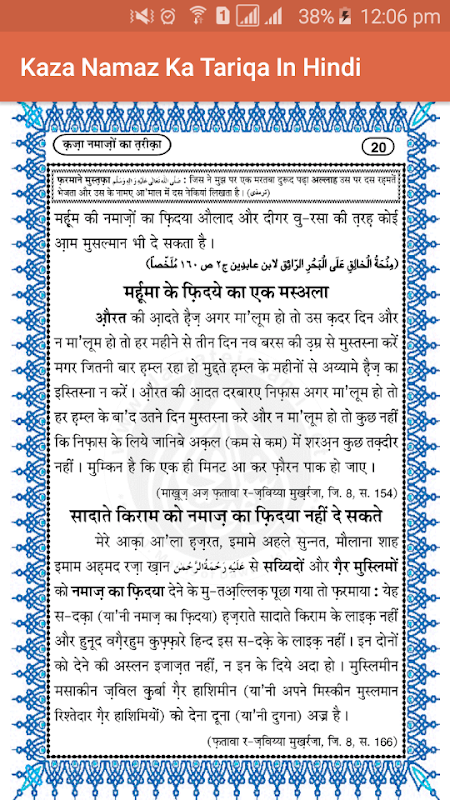 38% 12:06 pm
Kaza Namaz Ka Tariqa In Hindi
क़ज़ा नमाज़ों का त़रीक़ा
20
फ़रमाने मुस्त़फ़ा صَلَّى اللهُ تَعَالٰى عَلَيْهِ وَاٰلِهٖ وَسَلَّم : जिस ने मुझ पर एक मरतबा दुरूद पढ़ा अल्लाह उस पर दस रह़मतें
भेजता और उस के नामए आ'माल में दस नेकियां लिखता है। (ترمذی)
मर्हूम की नमाज़ों का फ़िदया औलाद और दीगर वु-रसा की त़रह़ कोई
आ़म मुसल्मान भी दे सकता है।
(مِنْحَةُ الْخَالِق عَلَى الْبَحْرِ الرَّائِق لابن عابدِين ج٢ ص ١٦٠ مُلَخَّصاً)
मर्हूमा के फ़िदये का एक मस्अला
औ़रत की आ़दते ह़ैज़ अगर मा'लूम हो तो उस क़दर दिन और
न मा'लूम हो तो हर महीने से तीन दिन नव बरस की उ़म्र से मुस्तस्ना करें
मगर जितनी बार ह़म्ल रहा हो मुद्दते ह़म्ल के महीनों से अय्यामे ह़ैज़ का
इस्तिस्ना न करें। औ़रत की आ़दत दरबारए निफ़ास अगर मा'लूम हो तो
हर ह़म्ल के बा'द उतने दिन मुस्तस्ना करे और न मा'लूम हो तो कुछ नहीं
कि निफ़ास के लिये जानिबे अक़ल (कम से कम) में शरअ़न कुछ तक़्दीर
नहीं। मुम्किन है कि एक ही मिनट आ कर फ़ौरन पाक हो जाए।
(माख़ूज़ अज़ फ़तावा र-ज़विय्या मुख़र्रजा, जि. 8, स. 154)
सादाते किराम को नमाज़ का फ़िदया नहीं दे सकते
मेरे आक़ा आ'ला ह़ज़रत, इमामे अहले सुन्नत, मौलाना शाह
इमाम अह़मद रज़ा ख़ान عَلَيْهِ رَحْمَةُ الرَّحْمٰن से सय्यिदों और ग़ैर मुस्लिमों
को नमाज़ का फ़िदया देने के मु-तअ़ल्लिक़ पूछा गया तो फ़रमाया : येह
स-दक़ा (या'नी नमाज़ का फ़िदया) ह़ज़राते सादाते किराम के लाइक़ नहीं
और हुनूद वग़ैरहुम कुफ़्फ़ारे हिन्द इस स-दक़े के लाइक़ नहीं। इन दोनों
को देने की अस्लन इजाज़त नहीं, न इन के दिये अदा हो। मुस्लिमीन
मसाकीन ज़विल क़ुर्बा ग़ैर हाशिमीन (या'नी अपने मिस्कीन मुसल्मान
रिश्तेदार ग़ैर हाशिमियों) को देना दूना (या'नी दुगना) अज्र है।
(फ़तावा र-ज़विय्या मुख़र्रजा, जि. 8, स. 166)